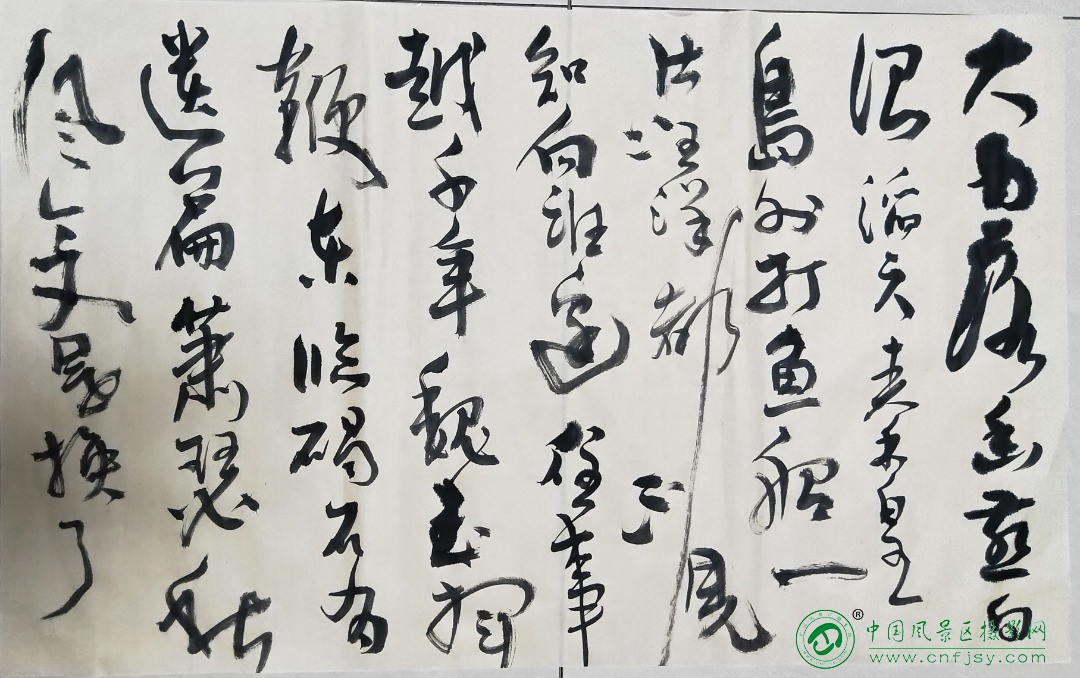 大雨落幽燕白
浪滔天秦皇
島外打鱼船一
片汪洋都不見
知向谁邊往事
越千年魏武揮
鞭东临碣石有
遗篇萧瑟秋
风今又是换了
中国风景区摄影网
www.cnfjsy.com